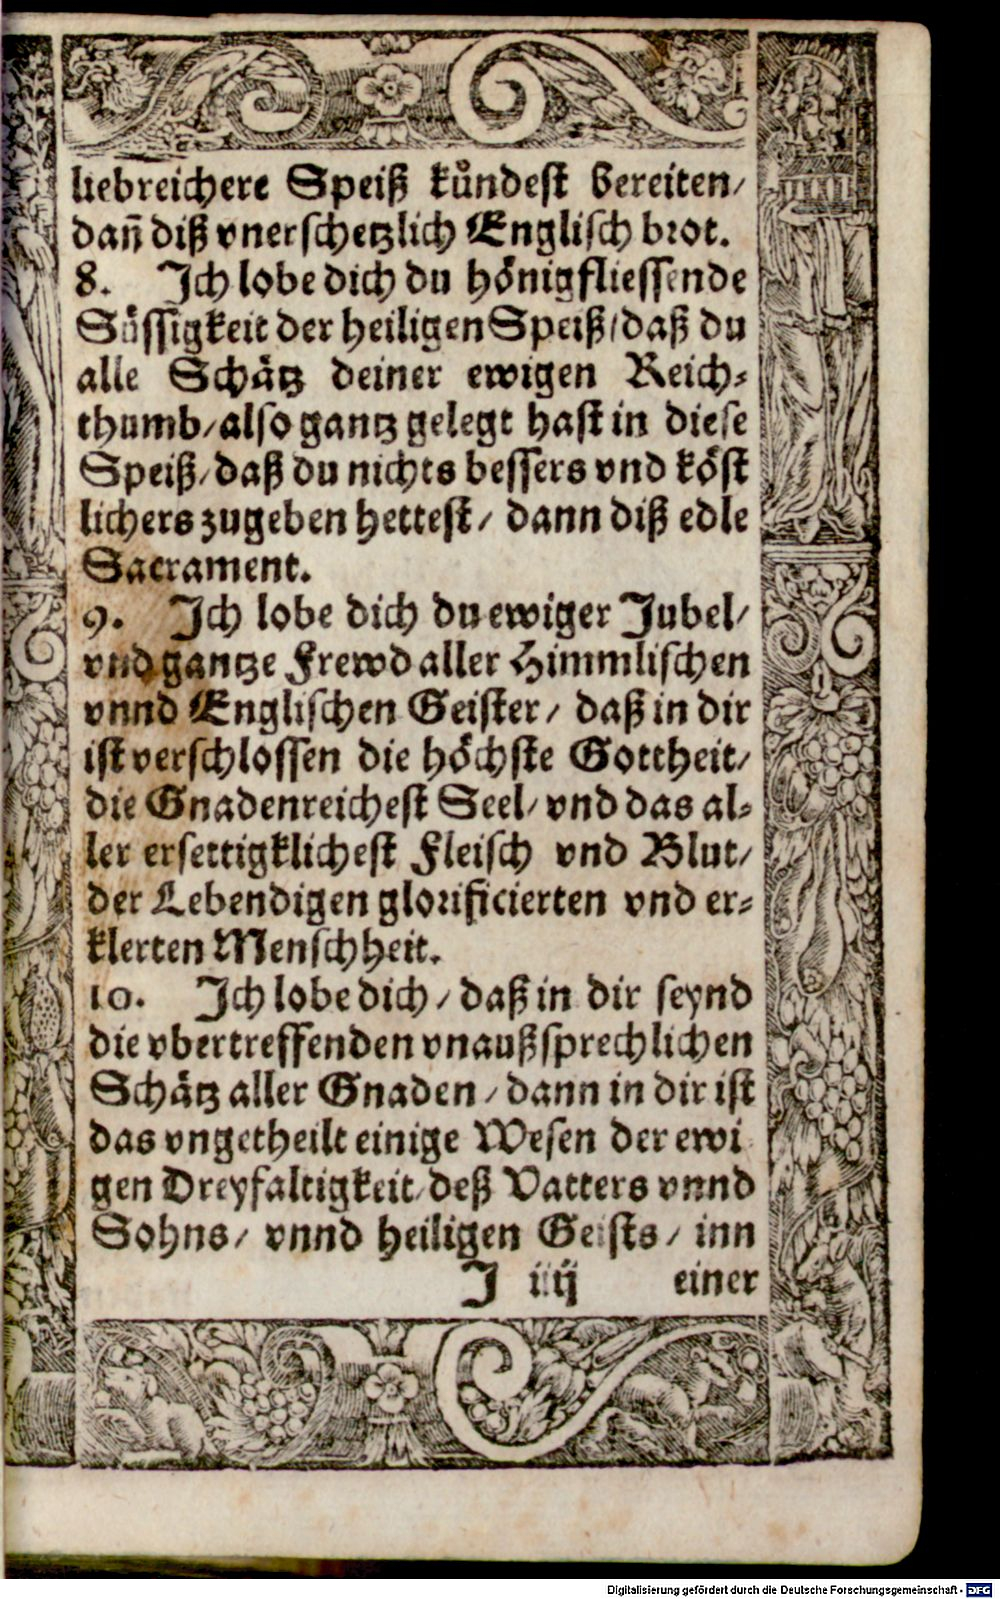 liebreichere Speiß kuͤndest bereiten/
dañ diß vnerschetzlich Englisch brot.
8. Ich lobe dich du hoͤnigfliessende
Suͤssigkeit der heiligen Speiß/ daß du
alle Schaͤtz deiner ewigen Reich⸗
thumb/ also gantz gelegt hast in diese
Speiß/ daß du nichts bessers vnd koͤst
lichers zugeben hettest/ dann diß edle
Sacrament.
9. Ich lobe dich du ewiger Jubel/
vnd gantze Frewd aller Himmlischen
vnnd Englischen Geister/ daß in dir
ist verschlossen die hoͤchste Gottheit/
die Gnadenreichest Seel/ vnd das al⸗
ler ersettigklichest Fleisch vnd Blut/
der Lebendigen glorificierten vnd er⸗
klerten Menschheit.
10. Ich lobe dich/ daß in dir seynd
die vbertreffenden vnaußsprechlichen
Schaͤtz aller Gnaden/ dann in dir ist
das vngetheilt einige Wesen der ewi
gen Dreyfaltigkeit/ deß Vatters vnnd
Sohns/ vnnd heiligen Geists/ inn
J iiij einer
Digitalisierung gefördert durch die Deutsche Forschungsgemeinschaft - DFG